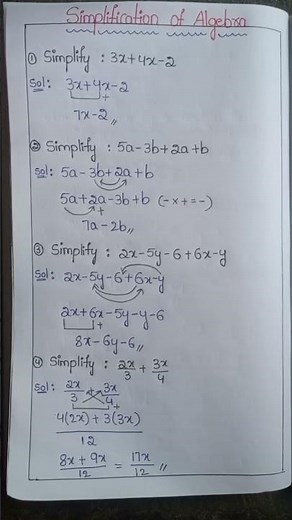 Simplification of Algebra
① Simplify : 3x+4x-2
Sol: 3x+4x-2
+
7x-2,,
② Simplify : 5a-3b+2a+b
Sol: 5a-3b+2a+b
5a+2a-3b+b (-x+=-)
+
7a-2b,,
③ Simplify : 2x-5y-6+6x-y
Sol: 2x-5y-6+6x-y
2x+6x-5y-y-6
+
8x-6y-6,,
④ Simplify : 2x/3 + 3x/4
Sol: 2x/3 + 3x/4
+
4(2x)+3(3x)
12
8x+9x/12 = 17x/12 ,,